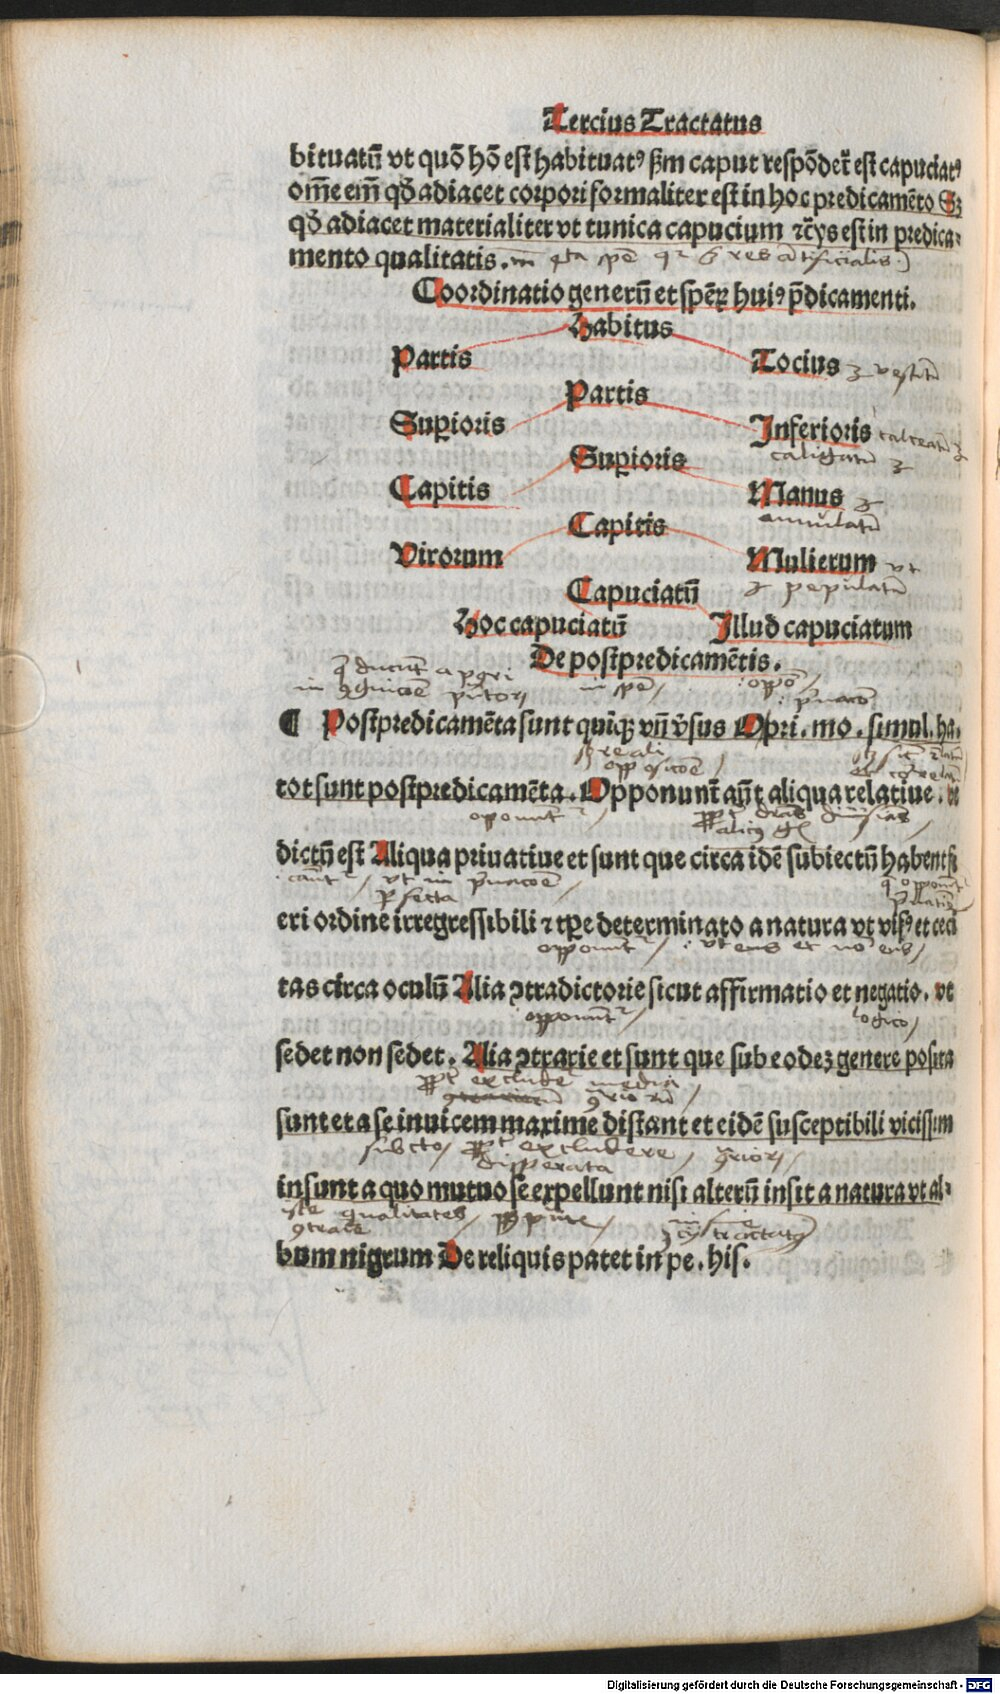 Tercius Tractatus
bituatū vt quō hō est habituat⁹ ẜm caput respōdet̄ est capuciat⁹
om̄e em̄ qd̄ adiacet corpori formaliter est in hoc predicamēto Sꝫ
qd̄ adiacet materialiter vt tunica capucium ⁊c̄ys est in predica-
mento qualitatis. res artificialis
Coordinatio generū et speꝝ hui⁹ p̄dicamenti.
Habitus
Partis Tocius vestitū
Partis
Suꝑioris Inferioris calceatū
Suꝑioris caligatū
Capitis Manus
Capitis annulatū
Virorum Mulierum vt
Capuciatū pepulatū
Hoc capuciatū Illud capuciatum
De postpredicamētis.
in spē oppō
¶ Postpredicamēta sunt quīqꝫ vn̄ v̄sus Opri. mo. simul. ha.
reali
tot sunt postpredicamēta. Opponunt̄ aūt aliqua relatiue. vt
dictū est Aliqua priuatiue et sunt que circa idē subiectū habent fi
eri ordine irregressibili ⁊ tꝑe determinato a natura vt vis⁹ et ceci
vt ens et nō ens
tas circa oculū Alia ꝯtradictorie sicut affirmatio et negatio. vt
logico
sedet non sedet. Alia ꝯtrarie et sunt que sub eodeꝫ genere posita
excludē media
sunt et a se inuicem maxime distant et eidē susceptibili vicissim
subcto excludere
disperata
insunt a quo mutuo se expellunt nisi alterū insit a natura vt al-
qualitates
bum nigrum De reliquis patet in pe. his.
Digitalisierung gefördert durch die Deutsche Forschungsgemeinschaft - DFG